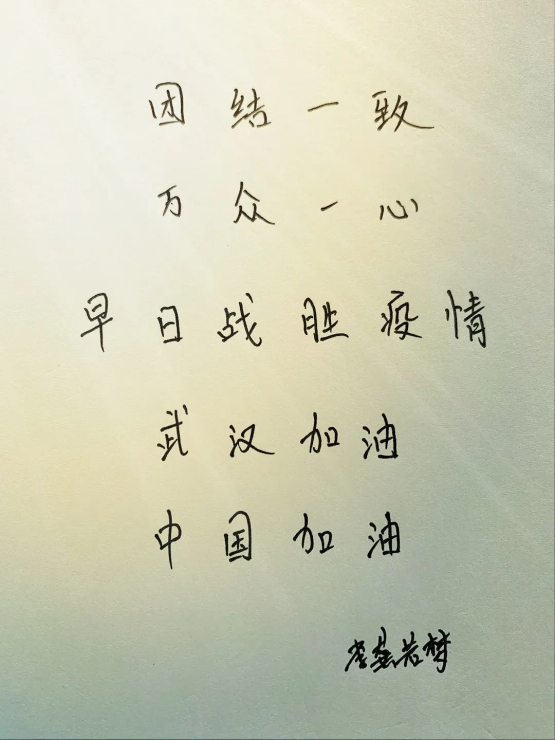 团结一致
万众一心
早日战胜疫情
武汉加油
中国加油
若梦